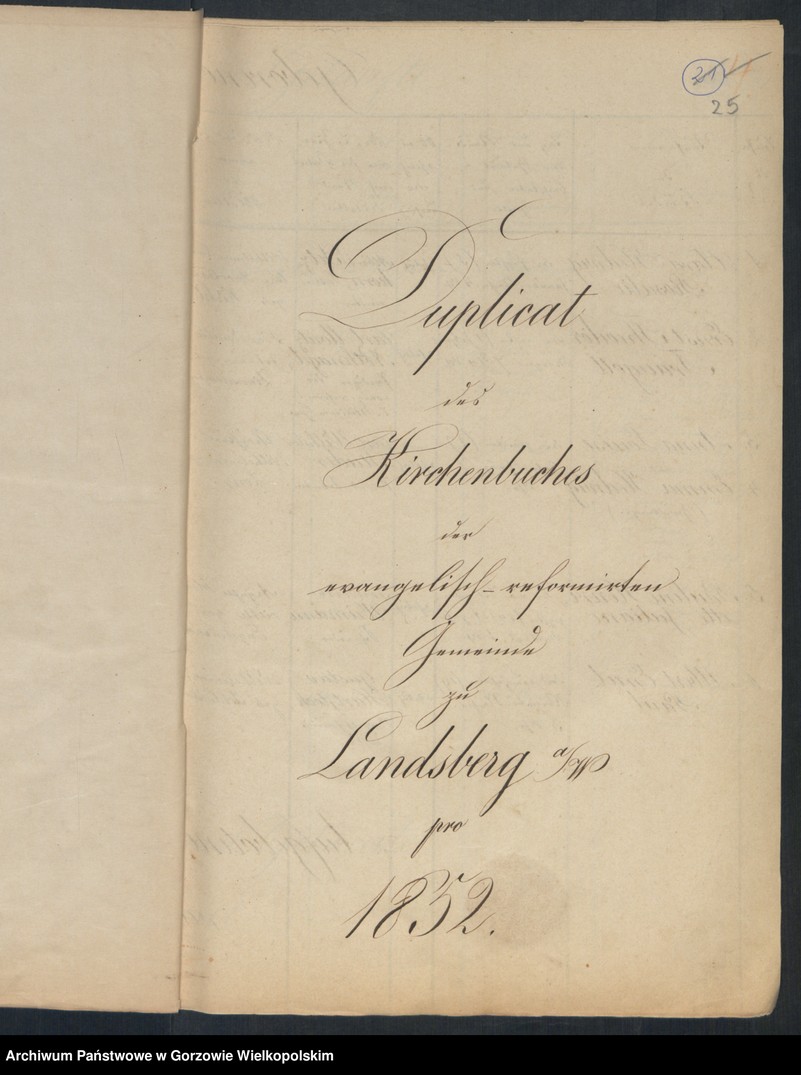 21
25
Duplicat
des
Kirchenbuches
der
evangelisch-reformirten
Gemeinde
zu
Landsberg a/W
pro
1852.
Archiwum Państwowe w Gorzowie Wielkopolskim